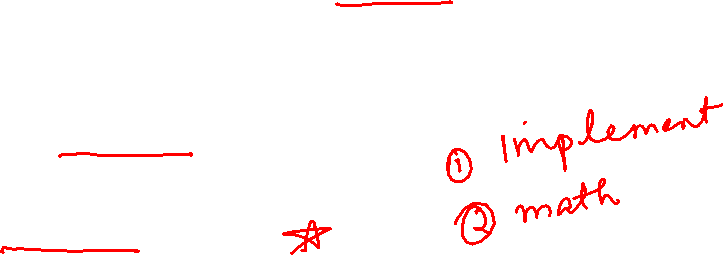 ① implement
② math